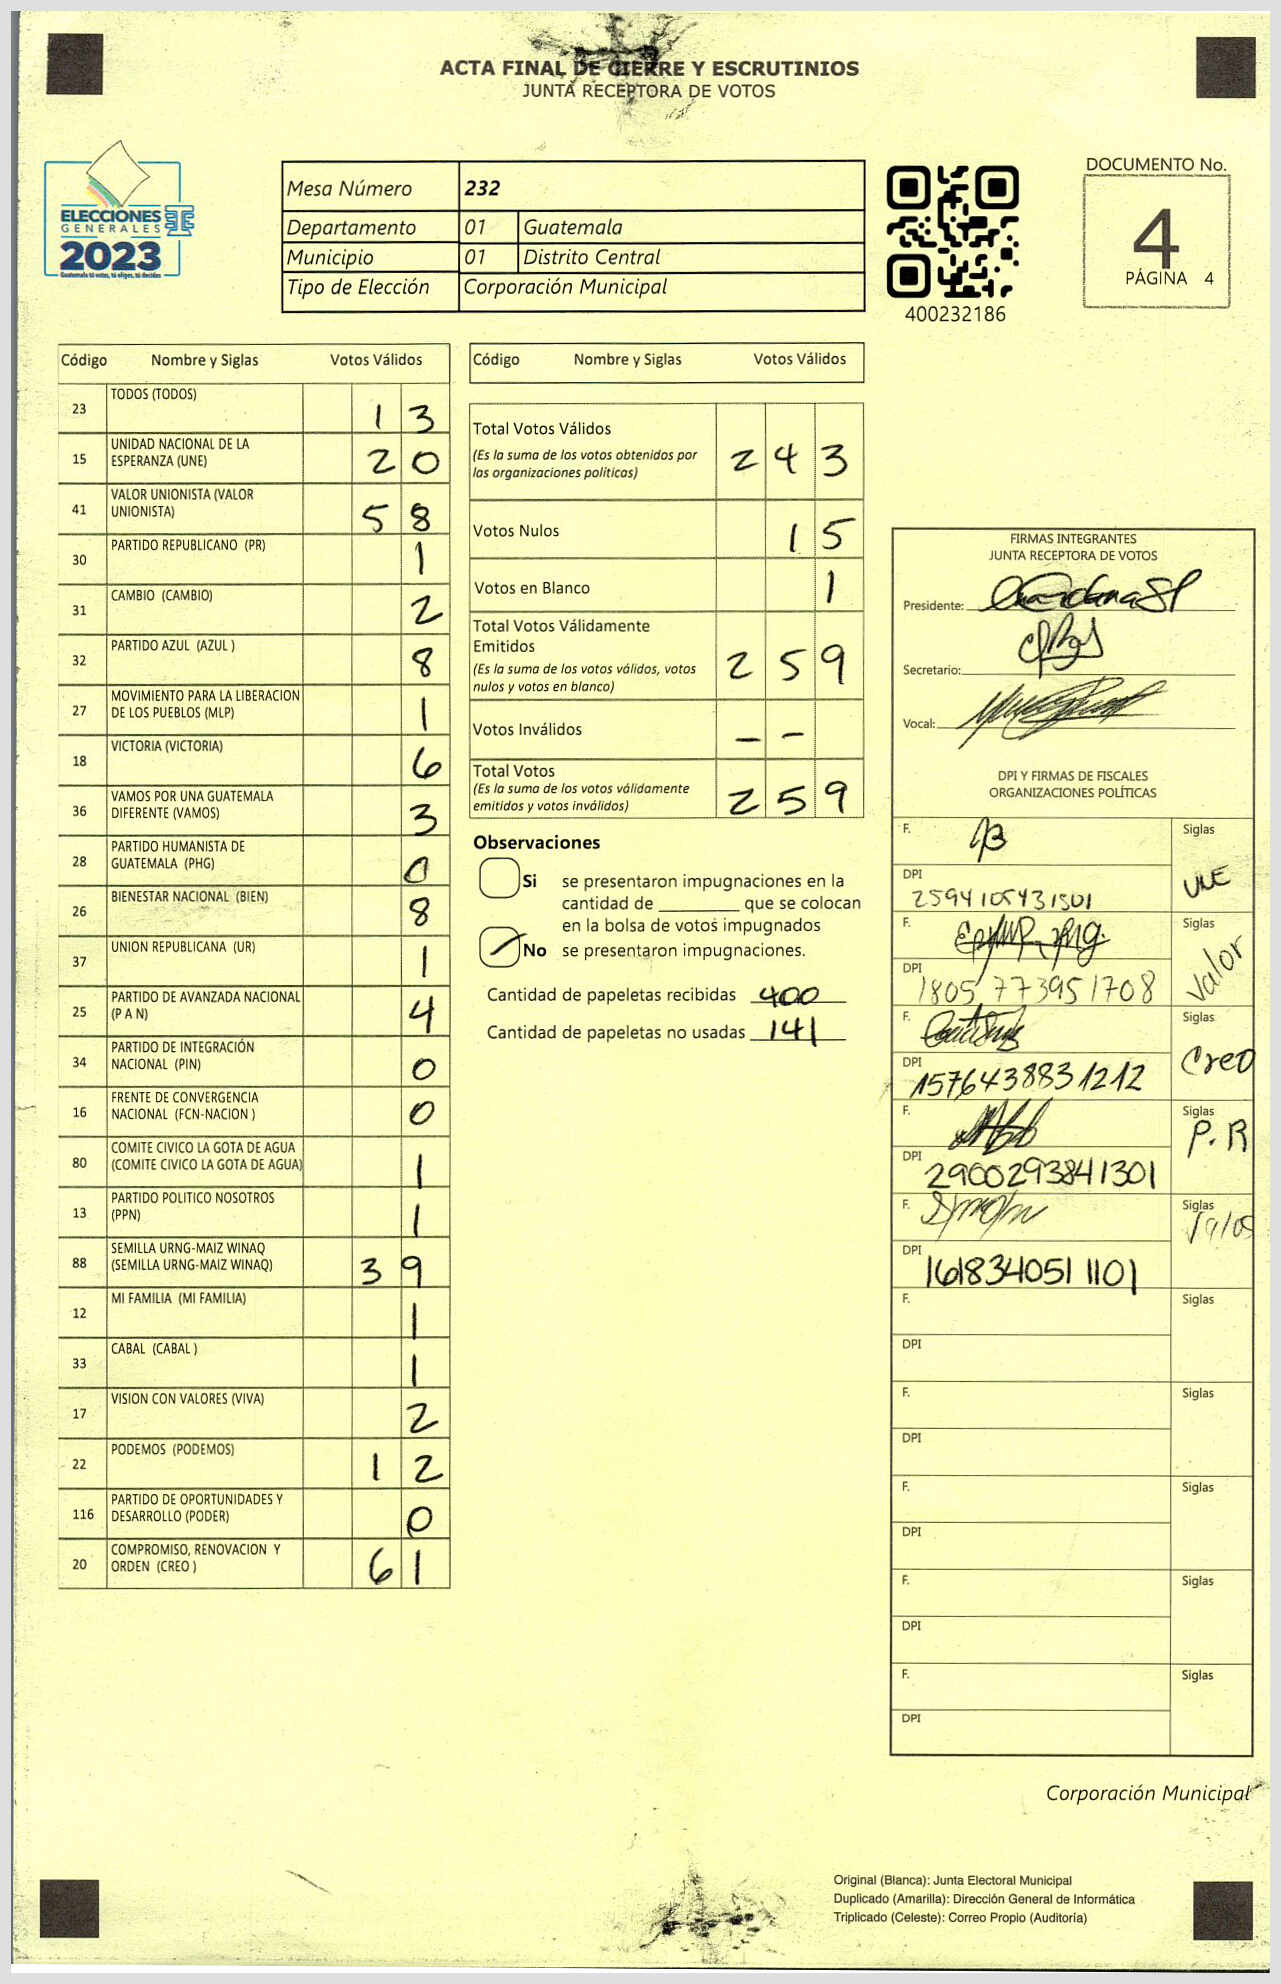 ACTA FINAL DE CIERRE Y ESCRUTINIOS
JUNTA RECEPTORA DE VOTOS
ELECCIONES
GENERALES
2023
Guatemala tú votas, tú eliges, tú decides
Mesa Número 232
Departamento 01 Guatemala
Municipio 01 Distrito Central
Tipo de Elección Corporación Municipal
400232186
DOCUMENTO No.
4
PÁGINA 4
Código Nombre y Siglas Votos Válidos
23 TODOS (TODOS) 13
15 UNIDAD NACIONAL DE LA
ESPERANZA (UNE) 20
41 VALOR UNIONISTA (VALOR
UNIONISTA) 58
30 PARTIDO REPUBLICANO (PR) 1
31 CAMBIO (CAMBIO) 2
32 PARTIDO AZUL (AZUL ) 8
27 MOVIMIENTO PARA LA LIBERACION
DE LOS PUEBLOS (MLP) 1
18 VICTORIA (VICTORIA) 6
36 VAMOS POR UNA GUATEMALA
DIFERENTE (VAMOS) 3
28 PARTIDO HUMANISTA DE
GUATEMALA (PHG) 0
26 BIENESTAR NACIONAL (BIEN) 8
37 UNION REPUBLICANA (UR) 1
25 PARTIDO DE AVANZADA NACIONAL
(P A N) 4
34 PARTIDO DE INTEGRACIÓN
NACIONAL (PIN) 0
16 FRENTE DE CONVERGENCIA
NACIONAL (FCN-NACION ) 0
80 COMITE CIVICO LA GOTA DE AGUA
(COMITE CIVICO LA GOTA DE AGUA) 1
13 PARTIDO POLITICO NOSOTROS
(PPN) 1
88 SEMILLA URNG-MAIZ WINAQ
(SEMILLA URNG-MAIZ WINAQ) 39
12 MI FAMILIA (MI FAMILIA) 1
33 CABAL (CABAL ) 1
17 VISION CON VALORES (VIVA) 2
22 PODEMOS (PODEMOS) 12
116 PARTIDO DE OPORTUNIDADES Y
DESARROLLO (PODER) 0
20 COMPROMISO, RENOVACION Y
ORDEN (CREO ) 61
Código Nombre y Siglas Votos Válidos
Total Votos Válidos
(Es la suma de los votos obtenidos por
las organizaciones políticas) 243
Votos Nulos 15
Votos en Blanco 1
Total Votos Válidamente
Emitidos
(Es la suma de los votos válidos, votos
nulos y votos en blanco) 259
Votos Inválidos - -
Total Votos
(Es la suma de los votos válidamente
emitidos y votos inválidos) 259
Observaciones
Si se presentaron impugnaciones en la
cantidad de ________ que se colocan
en la bolsa de votos impugnados
No se presentaron impugnaciones.
Cantidad de papeletas recibidas 400
Cantidad de papeletas no usadas 141
FIRMAS INTEGRANTES
JUNTA RECEPTORA DE VOTOS
Presidente:
Secretario:
Vocal:
DPI Y FIRMAS DE FISCALES
ORGANIZACIONES POLÍTICAS
F. Siglas
UNE
DPI
2594105431501
F. Siglas
Valor
DPI
1805 773951708
F. Siglas
Creo
DPI
1576438831212
F. Siglas
P.R
DPI
2900293841301
F. Siglas
DPI
1618340511101
F. Siglas
DPI
F. Siglas
DPI
F. Siglas
DPI
F. Siglas
DPI
F. Siglas
DPI
Corporación Municipal
Original (Blanca): Junta Electoral Municipal
Duplicado (Amarilla): Dirección General de Informática
Triplicado (Celeste): Correo Propio (Auditoría)